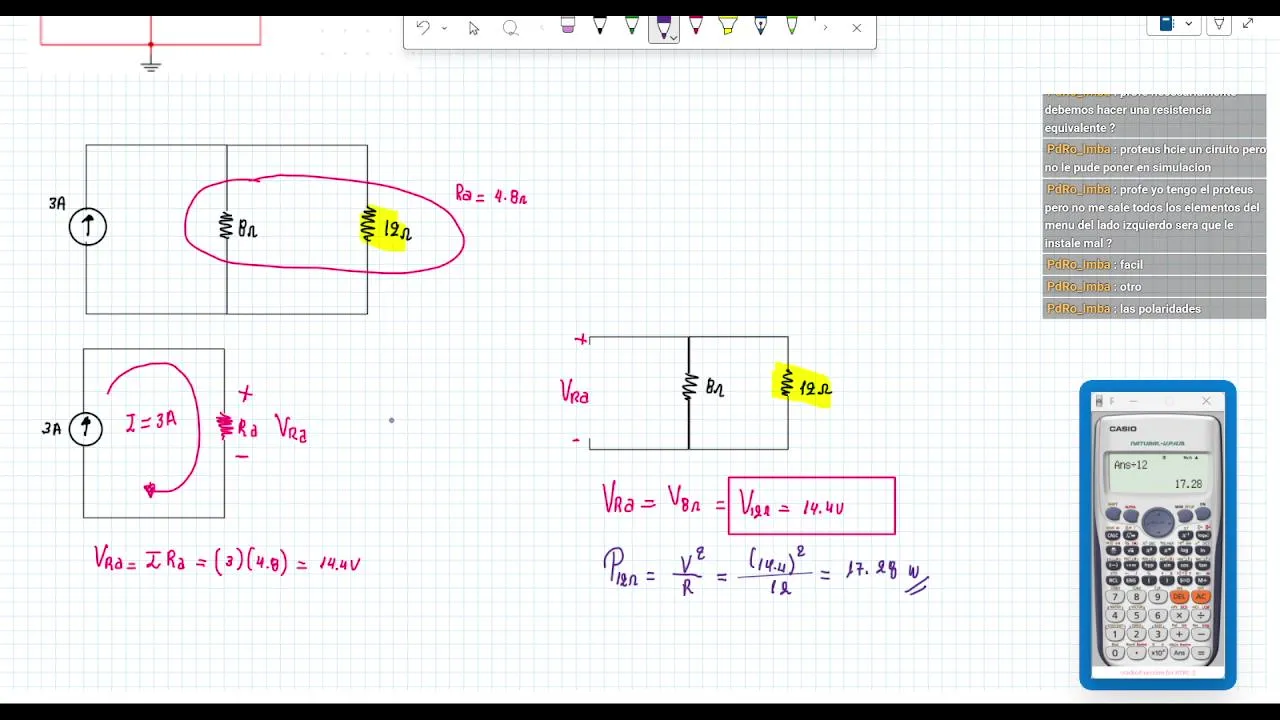 PdRo_Imba : profe necesariamente
debemos hacer una resistencia
equivalente ?
PdRo_Imba : proteus hcie un ciruito pero
no le pude poner en simulacion
PdRo_Imba : profe yo tengo el proteus
pero no me sale todos los elementos del
menu del lado izquierdo sera que le
instale mal ?
PdRo_Imba : facil
PdRo_Imba : otro
PdRo_Imba : las polaridades
3A
8Ω
12Ω
Ra = 4.8Ω
3A
I = 3A
+
Ra
VRa
-
VRa = I Ra = (3)(4.8) = 14.4V
+
VRa
-
8Ω
12Ω
VRa = V8Ω = V12Ω = 14.4V
P12Ω = V²/R = (14.4)²/12 = 17.28 W
F
CASIO
NATURAL-V.P.A.M.
Ans÷12
17.28
7 8 9 DEL AC
4 5 6 × ÷
1 2 3 + −
0 . ×10ˣ Ans =